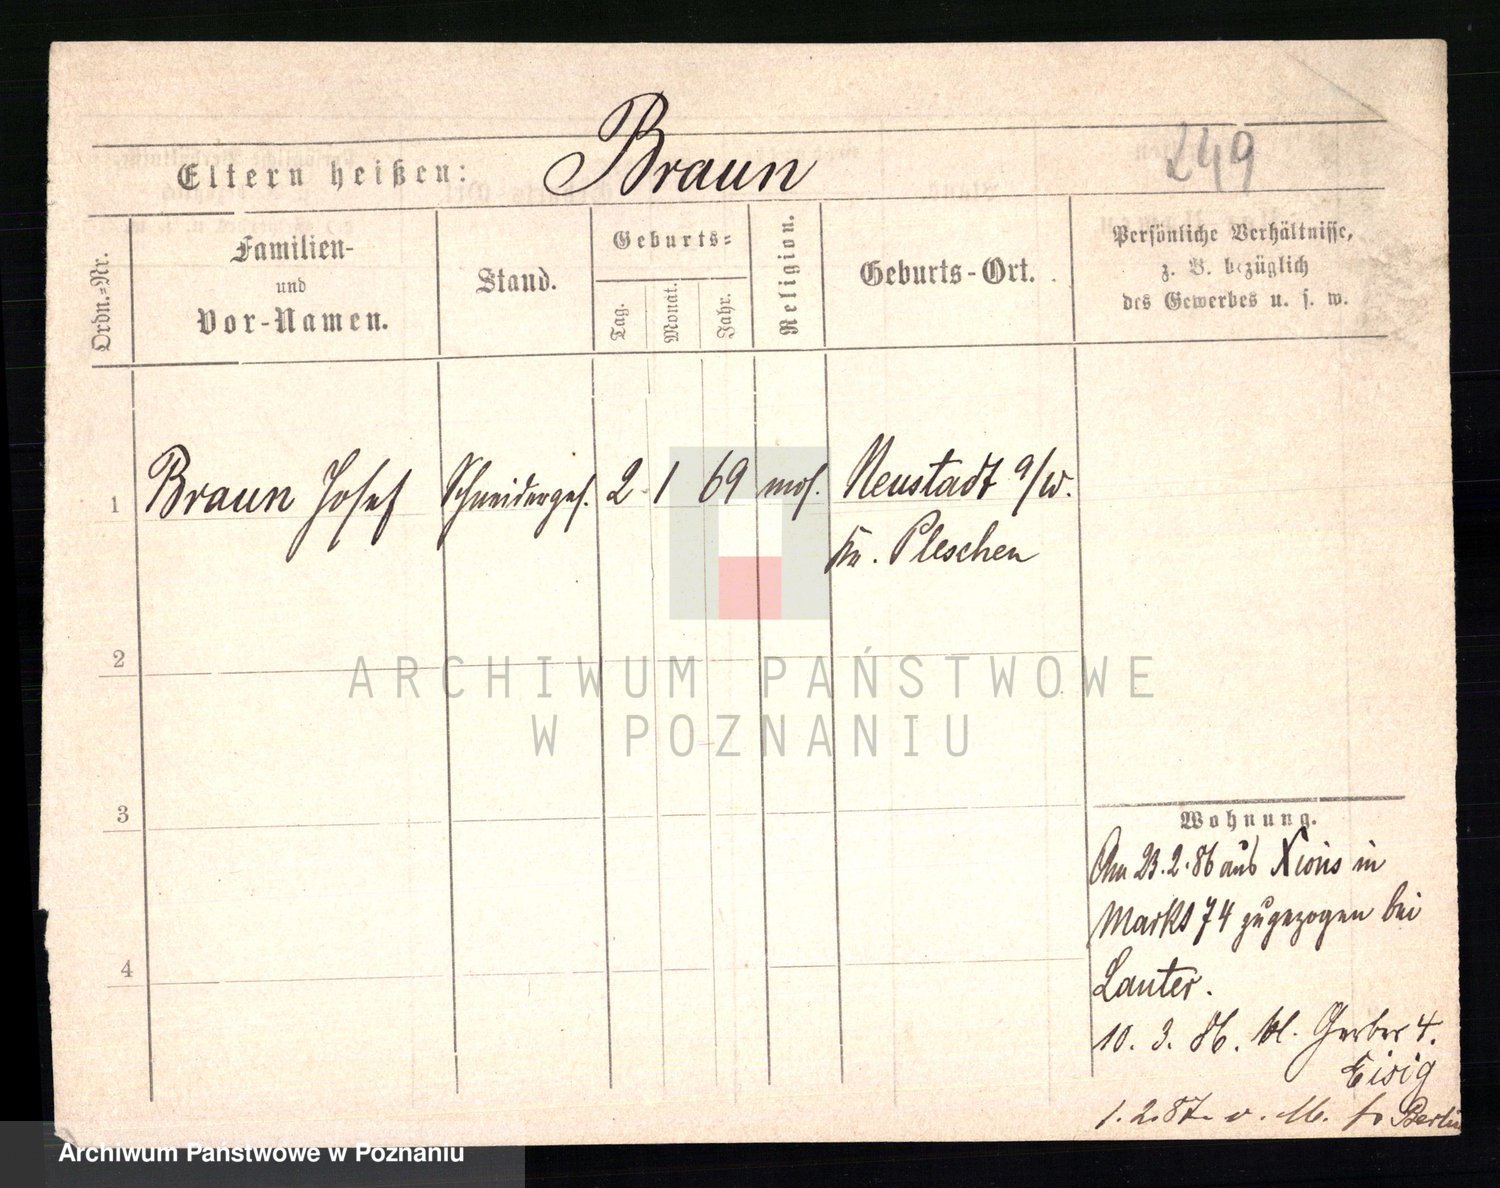 Eltern heißen: Braun 249
Ordn.=Nr.
Familien- und Vor-Namen.
Stand.
Geburts=
Tag.
Monat.
Jahr.
Religion.
Geburts-Ort.
Persönliche Verhältnisse,
z. B. bezüglich
des Gewerbes u. s. w.
1 Braun Josef Schneiderges. 2 1 69 mos. Neustadt a/W.
Kr. Pleschen
2
3
4
Wohnung.
Am 23.2.86 aus Xions in
Markt 74 zugezogen bei
Lauter.
10. 3. 86. kl. Gerber 4.
Eisig
1.2.87. Berlin
ARCHIWUM PAŃSTWOWE
W POZNANIU
Archiwum Państwowe w Poznaniu